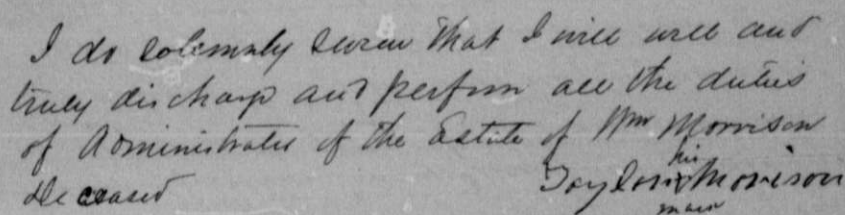 I do solemnly swear that I will well and
truly discharge and perform all the duties
of Administrator of the Estate of Wm Morrison
deceased
his
Taylor x Morrison
mark